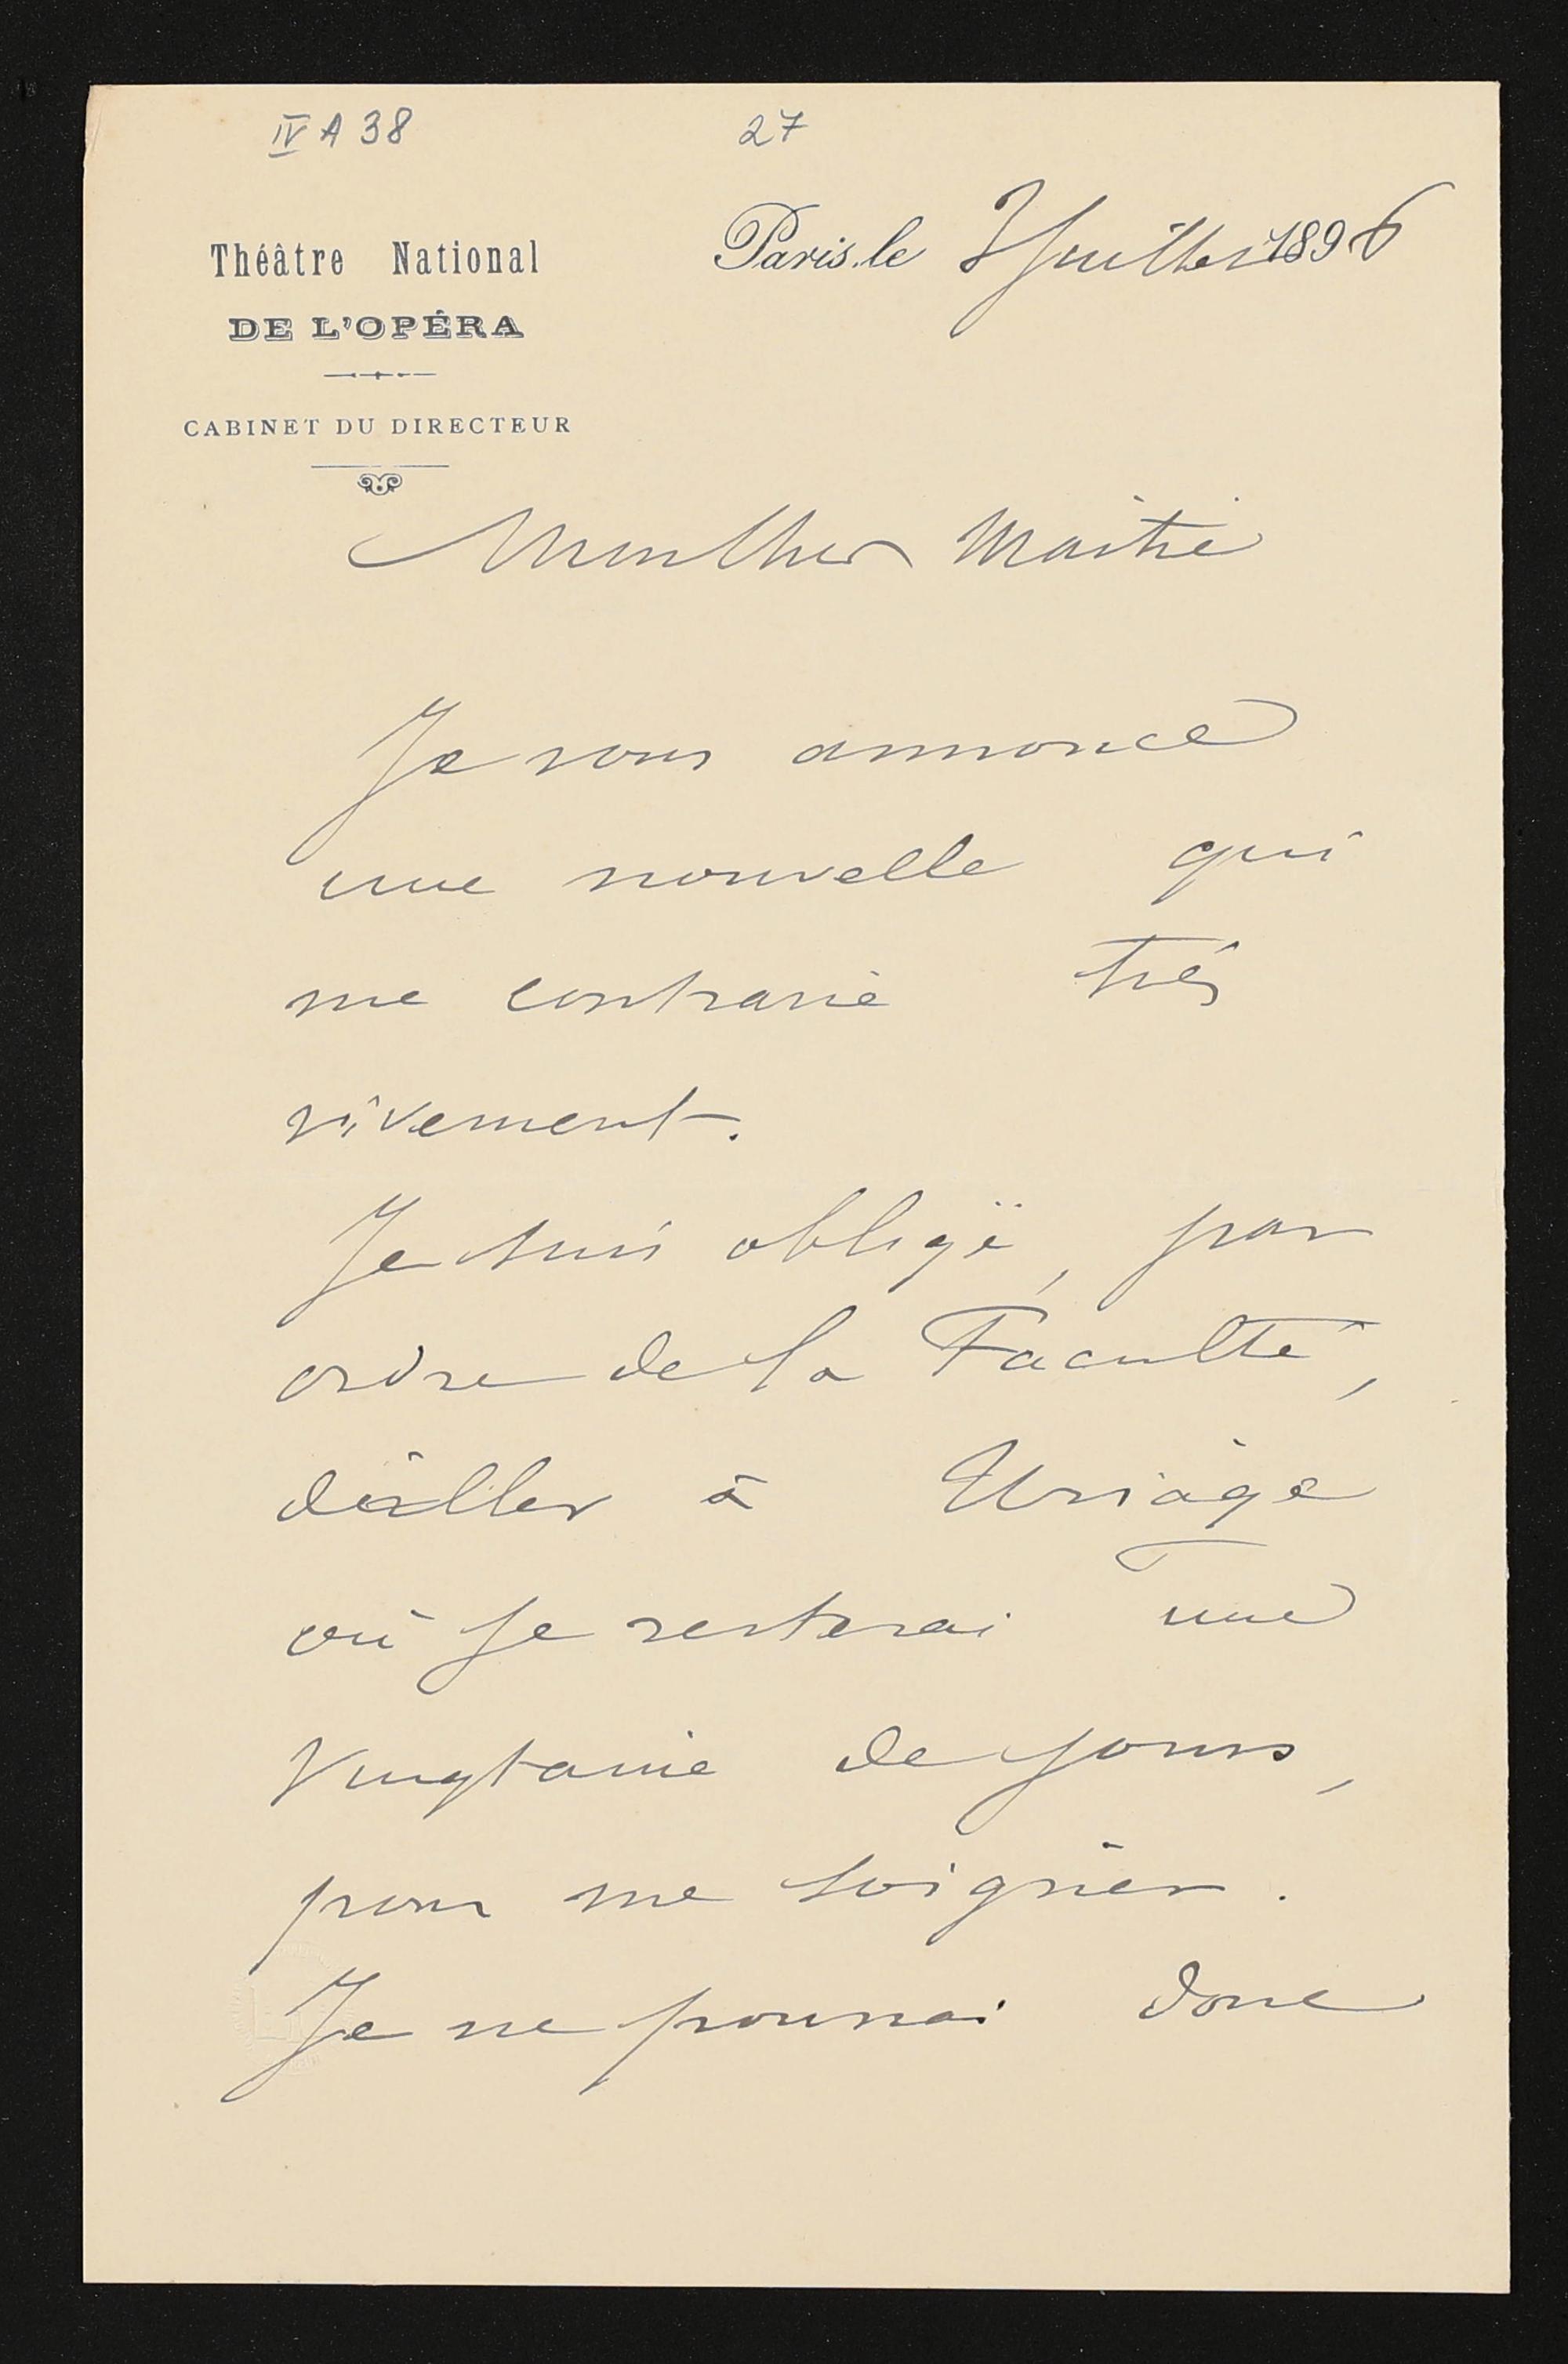 IV A 38
27
Théâtre National
DE L'OPÉRA
CABINET DU DIRECTEUR
Paris, le 7 Juillet 1896
Mon cher Maître
Je vous annonce
une nouvelle qui
me contrarie très
vivement.
Je suis obligé, par
ordre de la Faculté,
d'aller à Uriage
où je resterai une
Vingtaine de jours,
pour me soigner.
Je ne pourrai donc